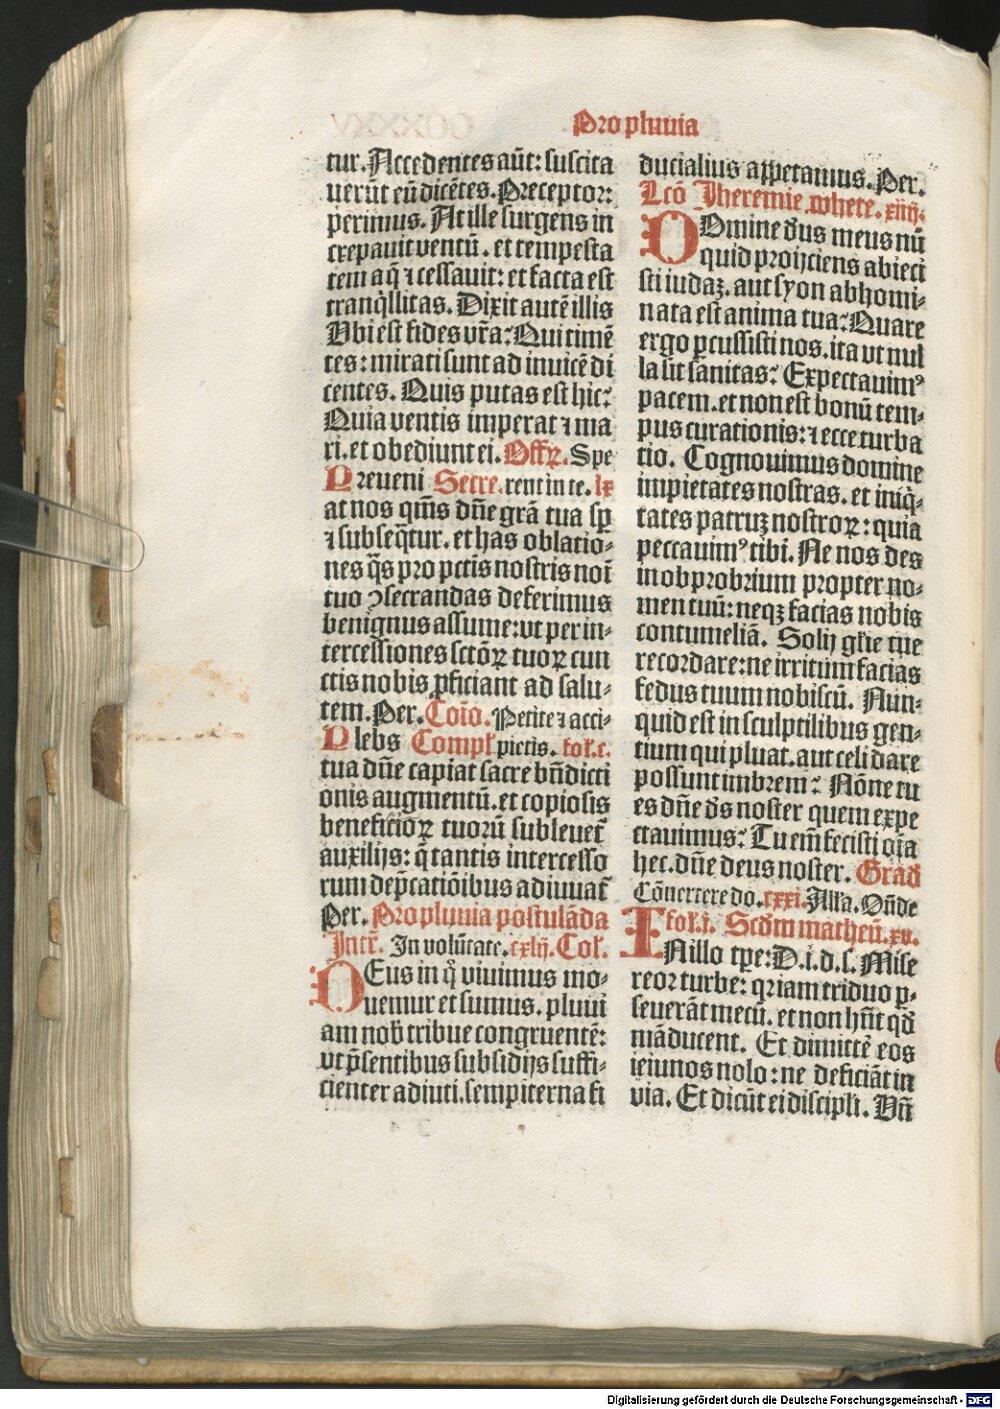 Pro pluuia
tur. Accedentes aūt: suscita
uerūt eū dicētes. Preceptor:
perimus. At ille surgens in
crepauit ventū. et tempesta
tem aq̄ ⁊ cessauit: et facta est
tranq̇llitas. Dixit autē illis
Vbi est fides vr̄a: Qui timē
tes: mirati sunt ad inuicē di
centes. Quis putas est hic:
Quia ventis imperat ⁊ ma
ri. et obediunt ei. Offꝝ. Spe
Preueni Secre. rent in te. lx
at nos qm̄s dn̄e grā tua sꝑ
⁊ subseq̄tur. et has oblatio-
nes q̄s pro pctis nostris noī
tuo ꝯsecrandas deferimus
benignus assume: vt per in-
tercessiones sctōꝝ tuoꝝ cun
ctis nobis ꝓficiant ad salu-
tem. Per. Cōio. Petite ⁊ acci-
Plebs Compl̄ pietis. fol. c.
tua dn̄e capiat sacre bn̄dicti
onis augmentū. et copiosis
beneficioꝝ tuorū subleuet̄
auxilijs: q̄ tantis intercesso
rum dep̄catiōibus adiuuat̄
Per. Pro pluuia postulāda
Intr̄. In volūtate. cxlij. Col.
DEus in q̇ viuimus mo-
uemur et sumus. pluui
am nob̄ tribue congruentē:
vt p̄sentibus subsidijs suffi-
cienter adiuti. sempiterna fi
ducialius appetamus. Per.
Lcō Iheremie ꝓphete. xiiij.
DOmine d̄us meus nū
quid proijciens abieci
sti iudaꝫ. aut syon abhomi-
nata est anima tua: Quare
ergo ꝑcussisti nos. ita vt nul
la sit sanitas: Expectauimꝰ
pacem. et non est bonū tem-
pus curationis: ⁊ ecce turba
tio. Cognouimus domine
impietates nostras. et iniq̇-
tates patruꝫ nostroꝝ: quia
peccauimꝰ tibi. Ne nos des
in obprobrium propter no-
men tuū: neqꝫ facias nobis
contumeliā. Solij gl̄ie tue
recordare: ne irritum facias
fedus tuum nobiscū. Nun-
quid est in sculptilibus gen-
tium qui pluat. aut celi dare
possunt imbrem: Nōne tu
es dn̄e d̄s noster quem expe
ctauimus: Tu em̄ fecisti oīa
hec. dn̄e deus noster. Grad̄
Cōuertere do. cxxi. Al̄l̄a. On̄de
fol. i. Scd̄m matheū. xv.
INillo tꝑe: D. i. d. s. Mise
reor turbe: q̄ iam triduo ꝑ-
seuerāt mecū. et non hn̄t qd̄
māducent. Et dimittē eos
ieiunos nolo: ne deficiāt in
via. Et dicūt ei discipl̄i. Vn̄
Digitalisierung gefördert durch die Deutsche Forschungsgemeinschaft - DFG